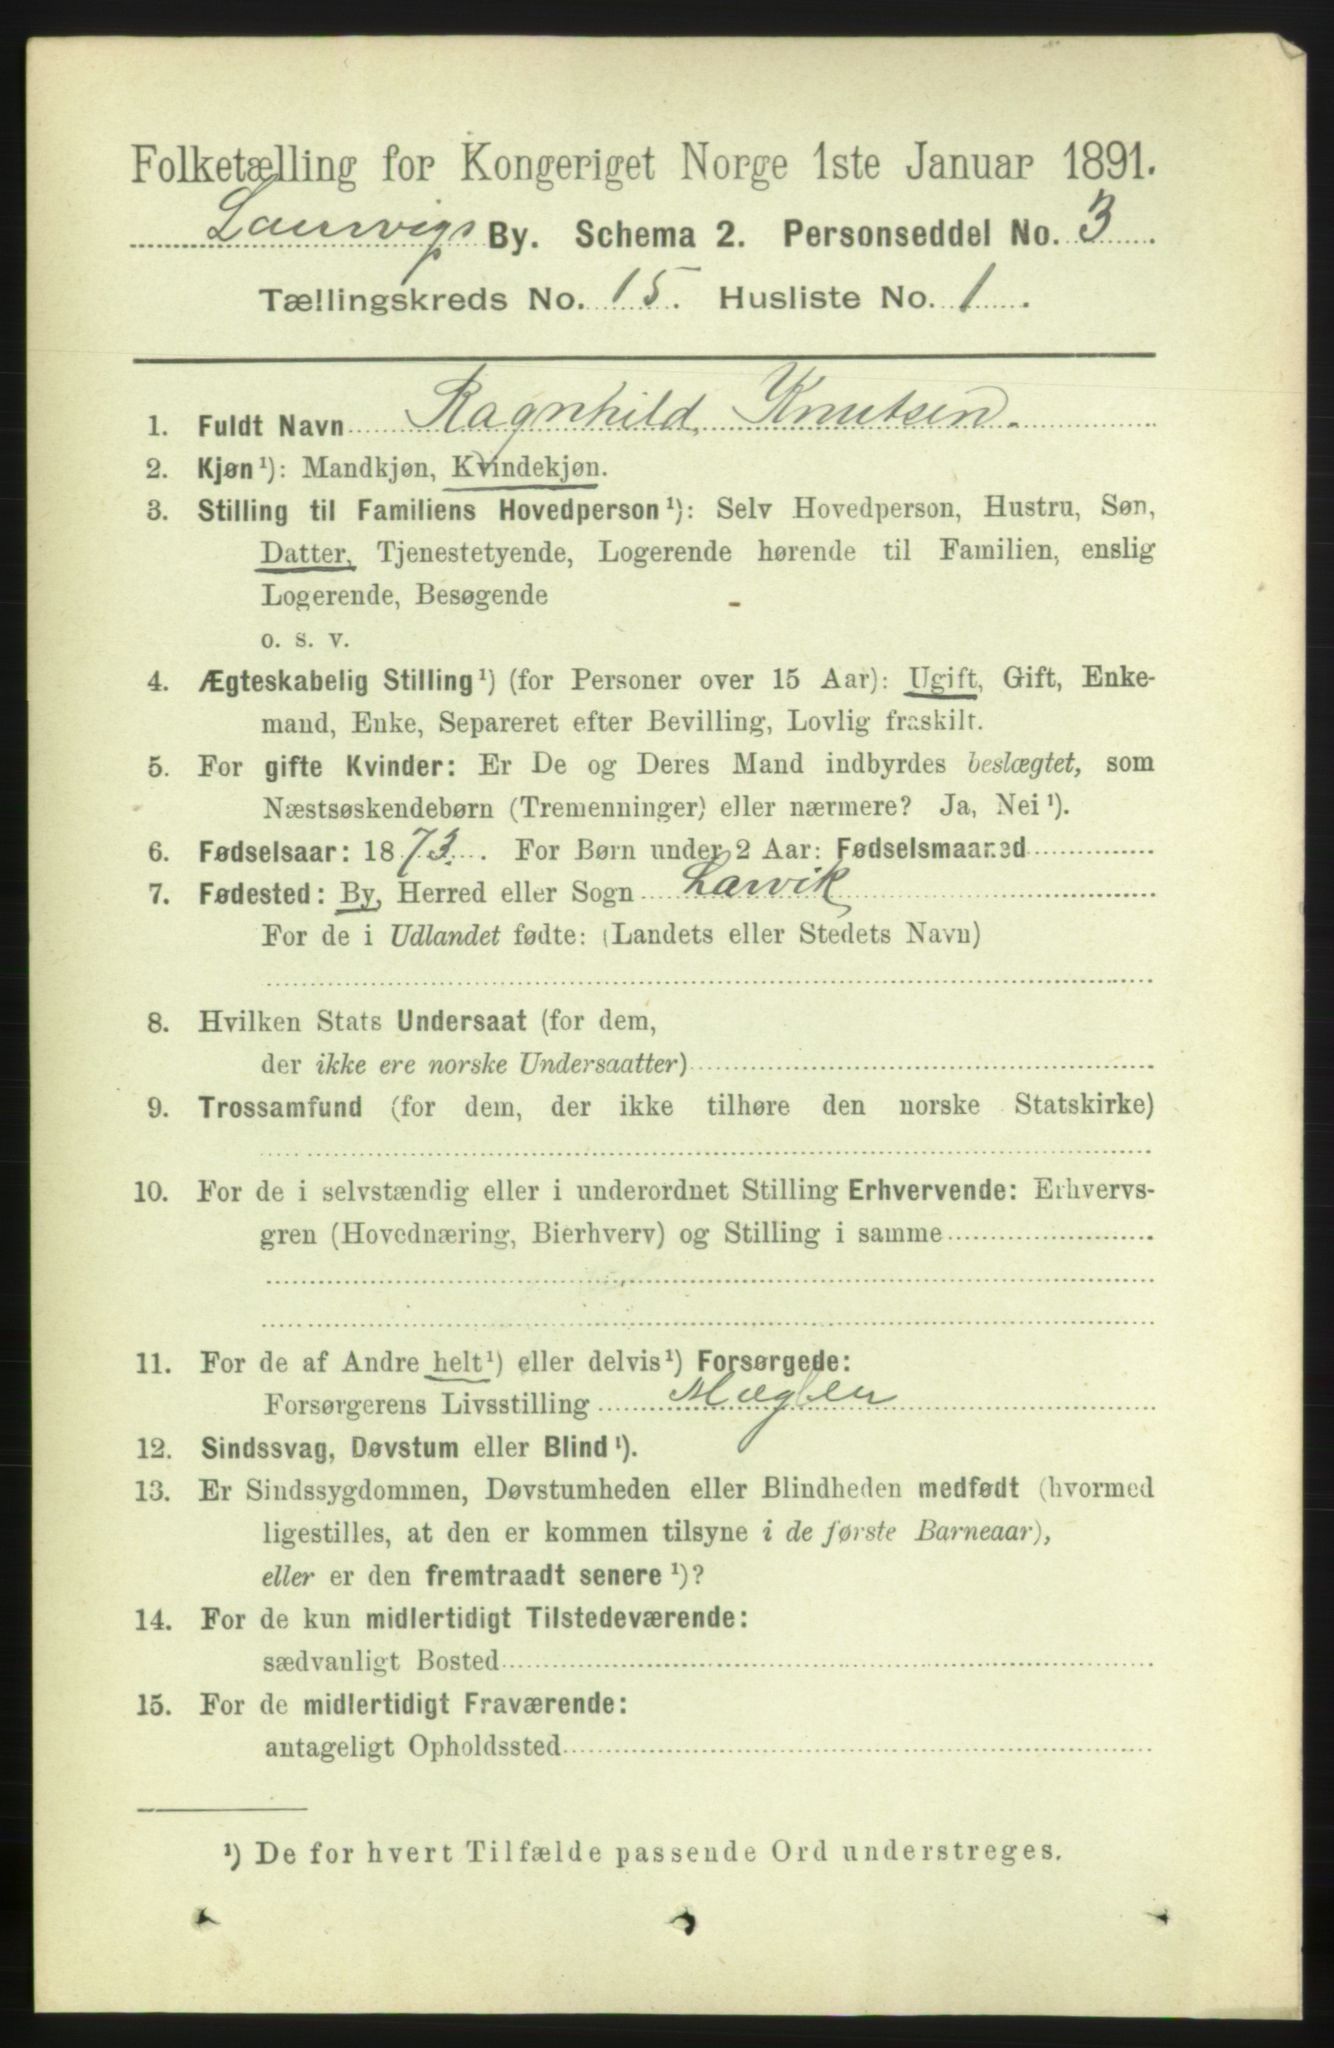 Folketælling for Kongeriget Norge 1ste Januar 1891.
Laurvigs By. Schema 2. Personseddel No. 3
Tællingskreds No. 15. Husliste No. 1.
1. Fuldt Navn Ragnhild Knutsen.
2. Kjøn¹): Mandkjøn, Kvindekjøn.
3. Stilling til Familiens Hovedperson¹): Selv Hovedperson, Hustru, Søn,
Datter, Tjenestetyende, Logerende hørende til Familien, enslig
Logerende, Besøgende
o. s. v.
4. Ægteskabelig Stilling¹) (for Personer over 15 Aar): Ugift, Gift, Enke-
mand, Enke, Separeret efter Bevilling, Lovlig fraskilt.
5. For gifte Kvinder: Er De og Deres Mand indbyrdes beslægtet, som
Næstsøskendebørn (Tremenninger) eller nærmere? Ja, Nei¹).
6. Fødselsaar: 1873. For Børn under 2 Aar: Fødselsmaaned
7. Fødested: By, Herred eller Sogn Larvik
For de i Udlandet fødte: (Landets eller Stedets Navn)
8. Hvilken Stats Undersaat (for dem,
der ikke ere norske Undersaatter)
9. Trossamfund (for dem, der ikke tilhøre den norske Statskirke)
10. For de i selvstændig eller i underordnet Stilling Erhvervende: Erhvervs-
gren (Hovednæring, Bierhverv) og Stilling i samme
11. For de af Andre helt¹) eller delvis¹) Forsørgede:
Forsørgerens Livsstilling Mægler
12. Sindssvag, Døvstum eller Blind¹).
13. Er Sindssygdommen, Døvstumheden eller Blindheden medfødt (hvormed
ligestilles, at den er kommen tilsyne i de første Barneaar),
eller er den fremtraadt senere¹)?
14. For de kun midlertidigt Tilstedeværende:
sædvanligt Bosted
15. For de midlertidigt Fraværende:
antageligt Opholdssted
¹) De for hvert Tilfælde passende Ord understreges.